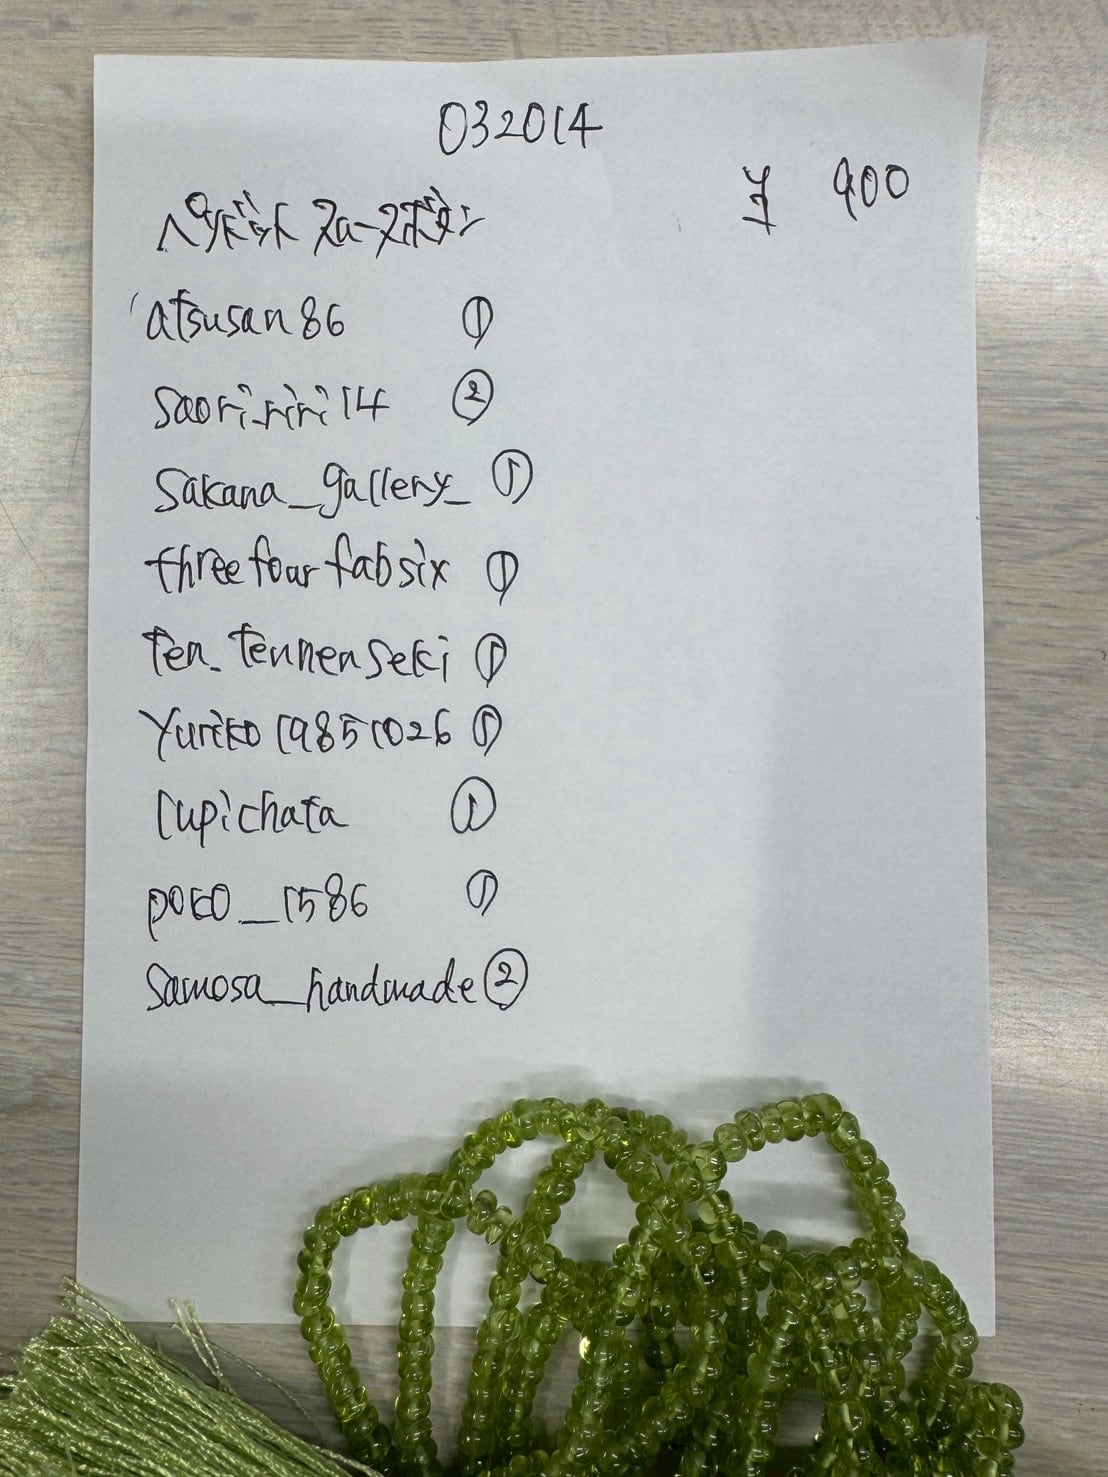 032014
¥ 900
ペリドット スムースボタン
atsusan86 ①
saori_riri14 ②
sakana_gallery_ ①
threefourfabsix ①
ten_tennenseki ①
yuriko19851026 ①
lupichata ①
poko__1586 ①
samosa__handmade ②